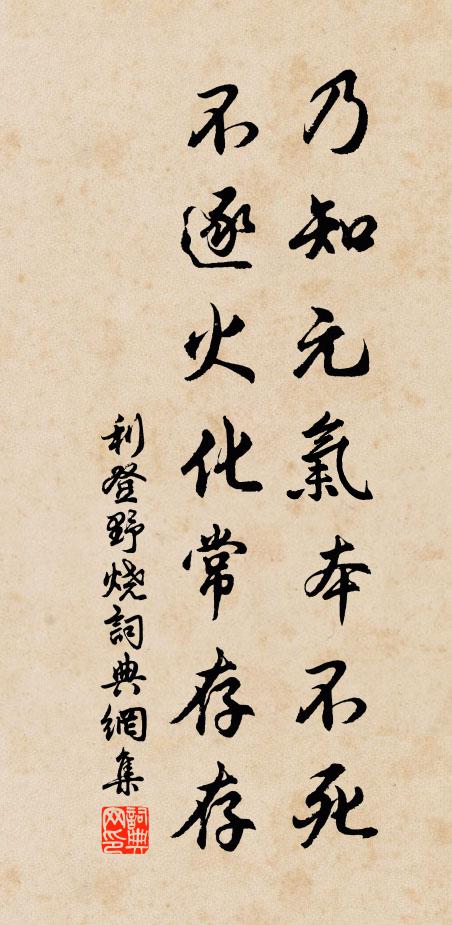 乃知元氣本不死
不逐火化常存存
利登野烧詞典網集
詞典网印